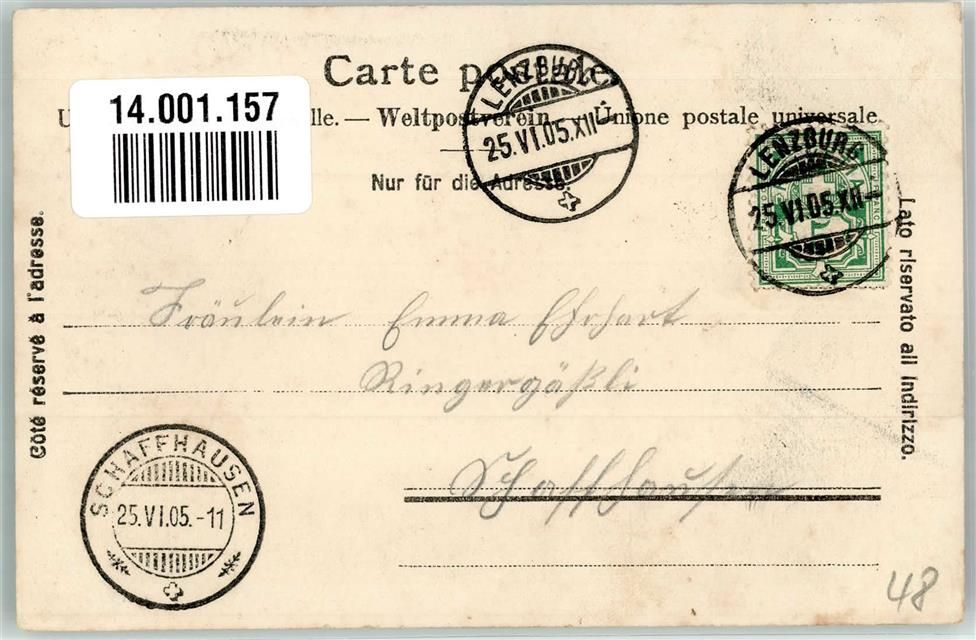 Carte postale
14.001.157
lle. — Weltpostverein — Unione postale universale
Nur für die Adresse.
LENZBURG
25.VI.05.XII
LENZBURG
25.VI.05.XII
Côté réservé à l'adresse.
Lato riservato all'indirizzo.
Fräulein Emma Ehrhart
Ringergäßli
Schaffhausen
SCHAFFHAUSEN
25.VI.05.-11
48